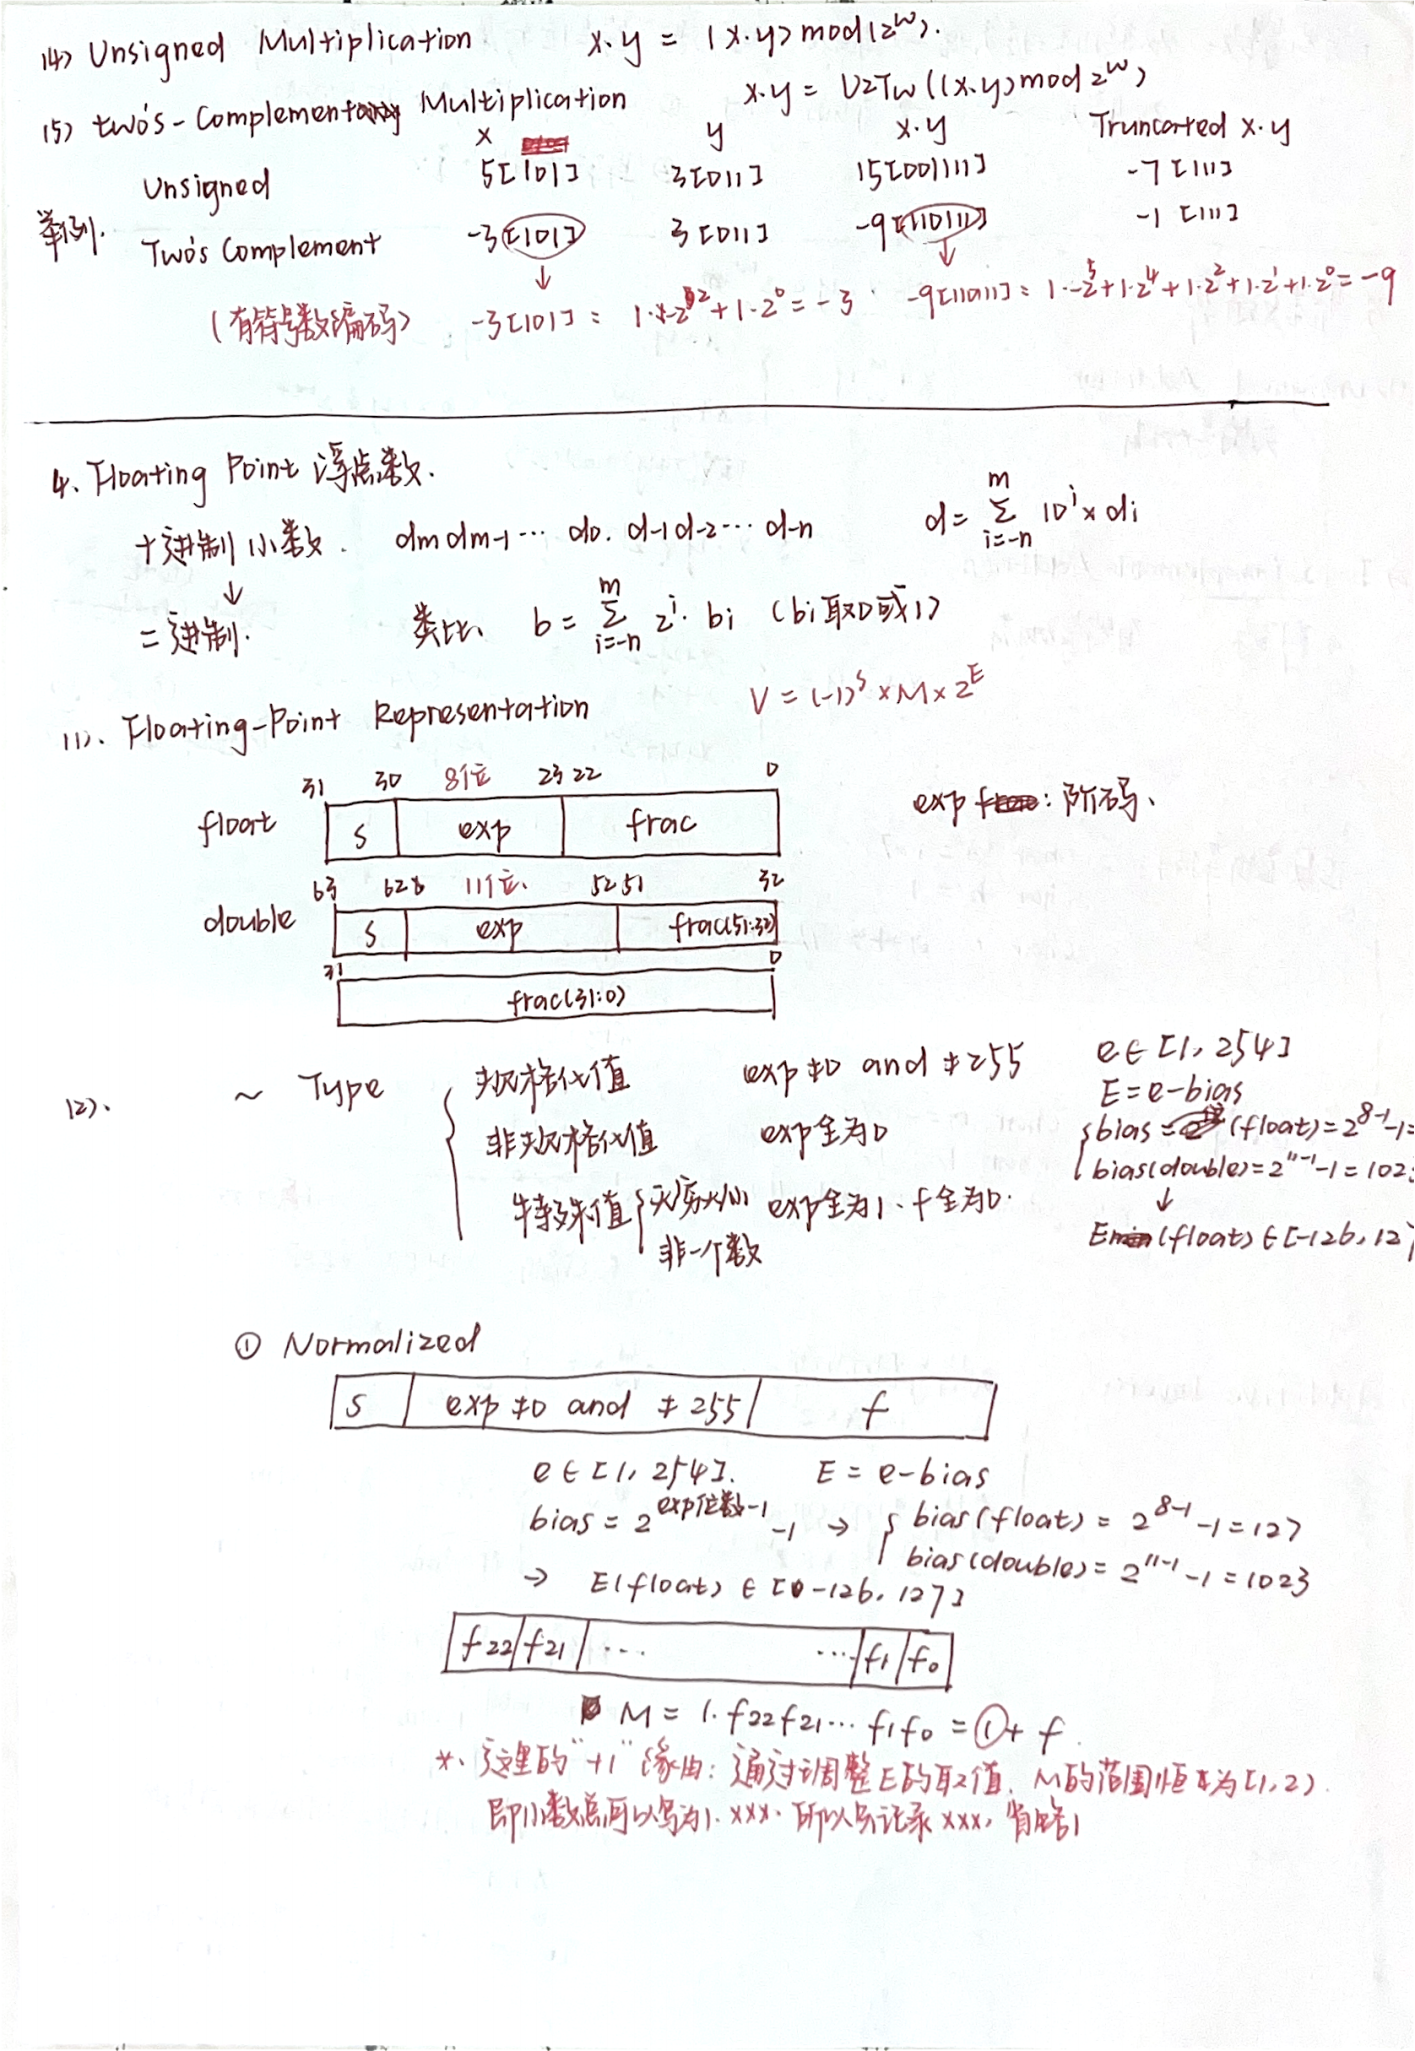 (4) Unsigned Multiplication x·y = (x·y) mod(2^w).
(5) two's-Complement Multiplication x·y = U2Tw((x·y) mod 2^w)
x y x·y Truncated x·y
Unsigned 5[101] 3[011] 15[001111] -7 [111]
举例. Two's Complement -3[101] 3[011] -9[110111] -1 [111]
(有符号数编码) -3[101] = 1·-2^2+1·2^0=-3 -9[110111] = 1·-2^5+1·2^4+1·2^2+1·2^1+1·2^0=-9
4. Floating Point 浮点数.
十进制小数. dmdm-1… d0. d-1d-2… d-n d=∑_{i=-n}^{m} 10^i×di
↓
二进制. 类比 b=∑_{i=-n}^{m} 2^i·bi (bi取0或1)
(1). Floating-Point Representation V=(-1)^s×M×2^E
31 30 8个位 23 22 0
float s exp frac exp: 阶码、
63 62 11个位. 52 51 32
double s exp frac(51:32)
31 0
frac(31:0)
(2). ~ Type { 规格化值 exp≠0 and ≠255 e∈[1, 254]
E=e-bias
非规格化值 exp全为0 { bias (float)=2^{8-1}-1=
bias(double)=2^{11-1}-1=102
↓
特殊值 { 无穷大/小 exp全为1、f全为0.
非一个数 E(float)∈[-126, 127
① Normalized
s exp≠0 and ≠255 f
e∈[1, 254]. E=e-bias
bias=2^{exp位数-1}-1 → { bias(float)=2^{8-1}-1=127
bias(double)=2^{11-1}-1=1023
→ E(float) ∈ [-126, 127]
f22 f21 … … f1 f0
M=1.f22f21… f1f0=①+f.
*. 这里的"+1"缘由: 通过调整E的取值. M的范围恒为[1,2).
即小数总可以写为1.xxx. 所以只记录xxx, 省略1